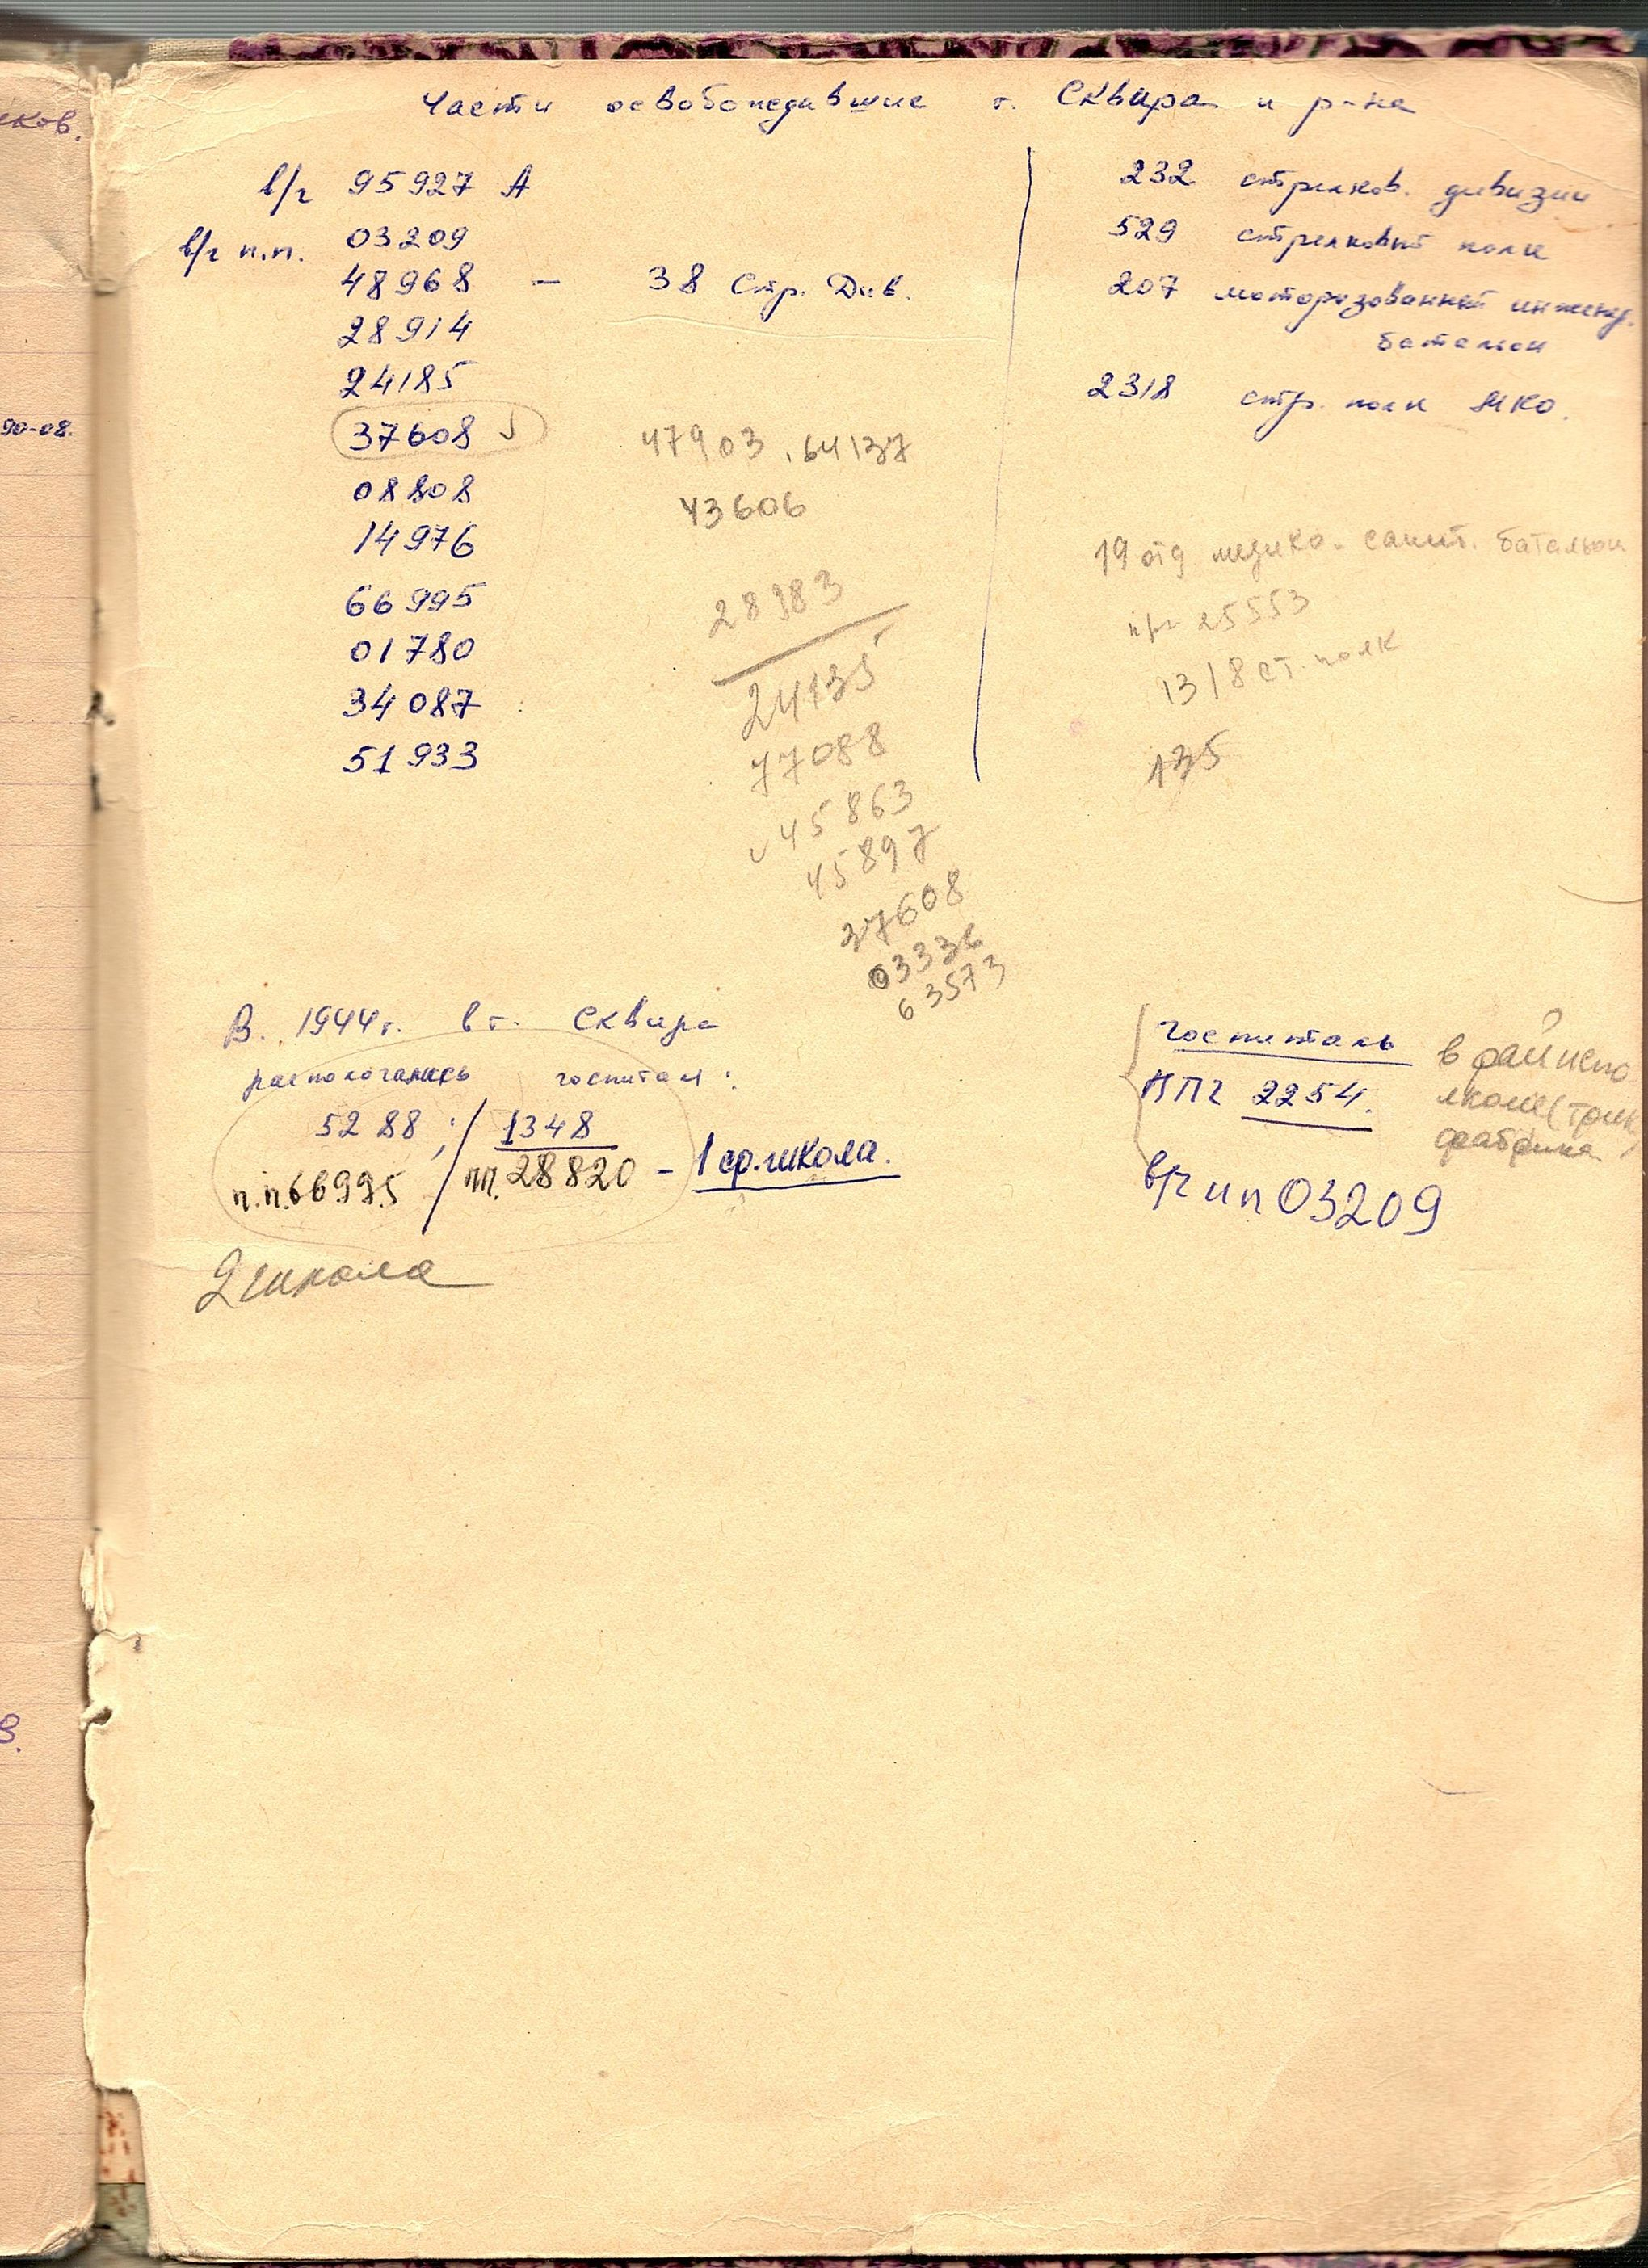 иков.
90-08.
в.
Части освобождившие г. Сквира и р-на
в/ч 95927 А
в/ч п.п. 03209
48968 — 38 Стр. Див.
28914
24185
37608
08808
14976
66995
01780
34087
51933
47903, 64137
43606
28983
24135
77088
45863
45897
37608
03336
63573
232 стрелков. дивизии
529 стрелковый полк
207 моторизованный инженер.
батальон
2318 стр. полк НКО.
19 отд медико-санит. батальон
25553
1318 ст. полк
135
В. 1944г. в г. Сквира
распологались госпитали:
5288; / 1348
п.п. 66995 / пп. 28820 – 1 ср. школа.
2 школа
госпиталь
ППГ 2254.
в/ч пп 03209
в райиспо
лкоме (трик
фабрика)